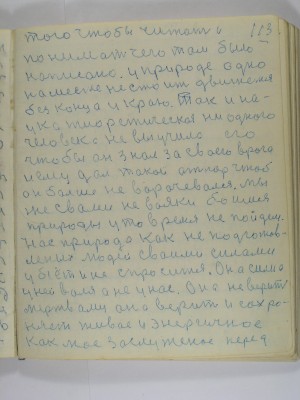 того чтобы читать и 113
понимат чего там было
написано. у природе одно
на месте не стоит движется
без конца и краю. Так и на-
ука тиоретическая ни одного
человека не выучила его
чтобы он знал за своего врага
ему дал такой отпор чтоб
он больше не ворочевался. мы
же с вами не вояки боимся
природы у то время не пойдем,
нас природа как не подготов-
леных людей своими силами
убьет и не спросится. Она сила
у ней воля а не у нас. Она не верить
мертвому она верит и сохро-
няет живое и энергичное
как мое заслуженое перед